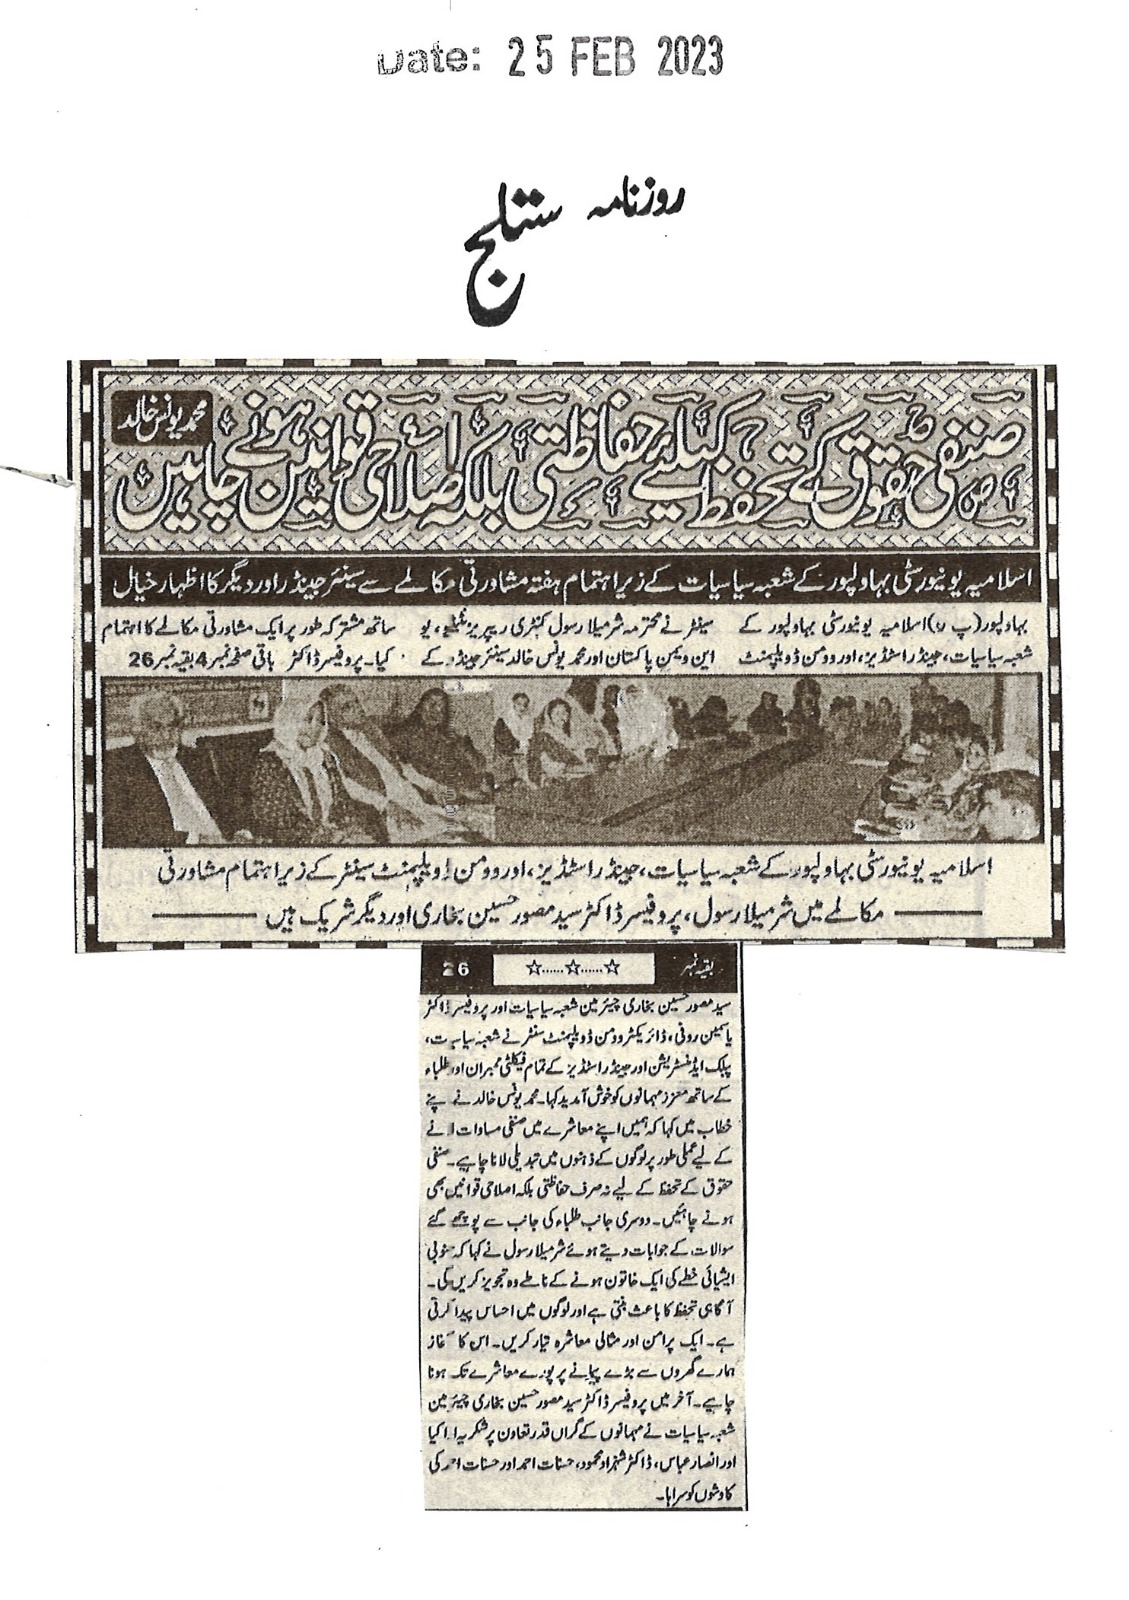 Date: 25 FEB 2023
روزنامہ ستلج
محمد یونس خالد
صنفی حقوق کے تحفظ کیلئے حفاظتی بلکہ اصلاحی قوانین ہونے چاہیں
اسلامیہ یونیورسٹی بہاولپور کے شعبہ سیاسیات کے زیر اہتمام ہفتہ مشاورتی مکالمے سے سینئر جینڈر اور دیگر کا اظہار خیال
بہاولپور (پ ر) اسلامیہ یونیورسٹی بہاولپور کے
شعبہ سیاسیات، جینڈر اسٹڈیز، اور وومن ڈویلپمنٹ
سینٹر نے محترمہ شرمیلا رسول کنٹری ریپریزنٹیٹیو، یو
این ویمن پاکستان اور محمد یونس خالد سینئر جینڈر کے
ساتھ مشترکہ طور پر ایک مشاورتی مکالمے کا اہتمام
کیا۔ پروفیسر ڈاکٹر باقی صفحہ نمبر 4 بقیہ نمبر 26
اسلامیہ یونیورسٹی بہاولپور کے شعبہ سیاسیات، جینڈر اسٹڈیز، اور وومن ڈویلپمنٹ سینٹر کے زیر اہتمام مشاورتی
مکالمے میں شرمیلا رسول، پروفیسر ڈاکٹر سید مصور حسین بخاری اور دیگر شریک ہیں
بقیہ نمبر ☆......☆......☆ 26
سید مصور حسین بخاری چیئر مین شعبہ سیاسیات اور پروفیسر ڈاکٹر
یاسمین روفی، ڈائریکٹر وومن ڈویلپمنٹ سنٹر نے شعبہ سیاسیات،
پبلک ایڈمنسٹریشن اور جینڈر اسٹڈیز کے تمام فیکلٹی ممبران اور طلباء
کے ساتھ معزز مہمانوں کو خوش آمدید کہا۔ محمد یونس خالد نے اپنے
خطاب میں کہا کہ ہمیں اپنے معاشرے میں صنفی مساوات لانے
کے لیے عملی طور پر لوگوں کے ذہنوں میں تبدیلی لانا چاہیے۔ صنفی
حقوق کے تحفظ کے لیے نہ صرف حفاظتی بلکہ اصلاحی قوانین بھی
ہونے چاہئیں۔ دوسری جانب طلباء کی جانب سے پوچھے گئے
سوالات کے جوابات دیتے ہوئے شرمیلا رسول نے کہا کہ جنوبی
ایشیائی خطے کی ایک خاتون ہونے کے ناطے وہ تجویز کریں گی۔
آگاہی تحفظ کا باعث بنتی ہے اور لوگوں میں احساس پیدا کرتی
ہے۔ ایک پرامن اور مثالی معاشرہ تیار کریں۔ اس کا آغاز
ہمارے گھروں سے بڑے پیمانے پر پورے معاشرے تک ہونا
چاہیے۔ آخر میں پروفیسر ڈاکٹر سید مصور حسین بخاری چیئر مین
شعبہ سیاسیات نے مہمانوں کے گراں قدر تعاون پر شکریہ ادا کیا
اور انصار عباس، ڈاکٹر شہزاد محمود، حسنات احمد اور حسنات احمد کی
کاوشوں کو سراہا۔